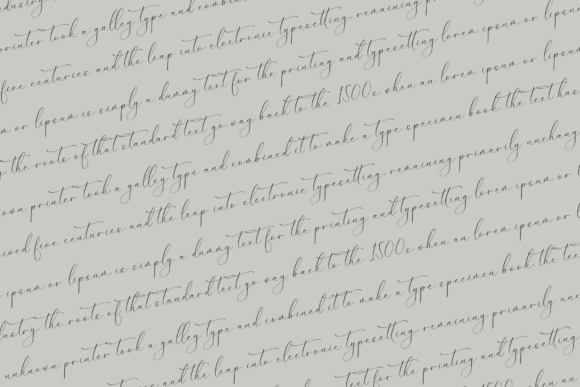 industry
printer took a galley type and combin
five centuries and the leap into electronic typesetting, remaining p
m or lipsum is simply a dummy text for the printing and typesetting lorem ipsum or lipsu
the roots of that standard text go way back to the 1500s when an lorem ipsum or lipsu
own printer took a galley type and combined it to make a type specimen book the text has
ived five centuries and the leap into electronic typesetting, remaining primarily unchang
ipsum or lipsum is simply a dummy text for the printing and typesetting lorem ipsum or l
dustry the roots of that standard text go way back to the 1500s when an lorem ipsum or l
unknown printer took a galley type and combined it to make a type specimen book the tex
five centuries and the leap into electronic typesetting, remaining primarily unc
text for the printing and typesetting
1500s when an